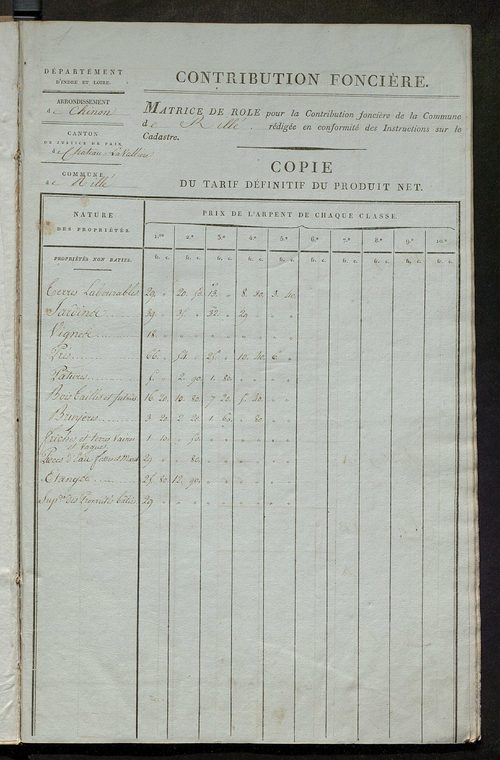 DÉPARTEMENT
D'INDRE ET LOIRE.
ARRONDISSEMENT
de Chinon
CANTON
DE JUSTICE DE PAIX
de Chateau Lavallière
COMMUNE
de Rillé
CONTRIBUTION FONCIÈRE.
MATRICE DE ROLE pour la Contribution foncière de la Commune
de Rillé rédigée en conformité des Instructions sur le
Cadastre.
COPIE
DU TARIF DÉFINITIF DU PRODUIT NET.
NATURE
DES PROPRIÉTÉS.
PRIX DE L'ARPENT DE CHAQUE CLASSE
1.re 2.e 3.e 4.e 5.e 6.e 7.e 8.e 9.e 10.e
PROPRIÉTÉS NON BATIES. fr. c. fr. c. fr. c. fr. c. fr. c. fr. c. fr. c. fr. c. fr. c. fr. c.
Terres Labourables 29. " 20. 50 13. " 8. 30. 3. 40.
Jardins 39. " 32. " 29
Vignes 18. "
Prés 66. " 25. " 10. 40. 6 "
Patures 5. " 2. 90. 1. 80.
Bois taillis et futaies 16 20 10. 80. 7 20. 5. 40.
Bruyères 3 20 2. 20. 1. 60. " 80.
Friches et terres vaines 1. 10 " 50.
et vagues
Pièces d'Eau 29 " 80.
Etangs 25. 80 12. 90.
Sup.cie des Propriétés bâties 29